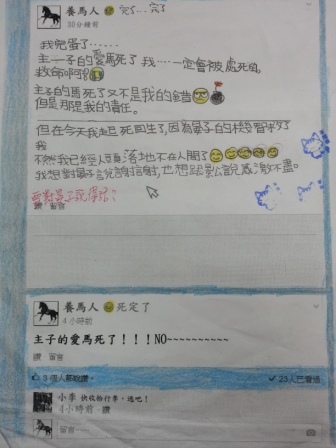 養馬人 完了…完了
30分鐘前
我完蛋了……
主子的愛馬死了 我…一定會被處死的,
救命啊阿
主子的馬死了又不是我的錯
但是那是我的責任。
但在今天我起死回生了,因為晏子的機智救了
我
不然我已經人頭落地不在人間了
我想對晏子說謝謝,也想說感激不盡。
讚 留言
養馬人 死定了
4小時前
主子的愛馬死了!!!NO~~~~~~~~~~
讚 留言
3個人都說讚。 23人已看過
小李 快收拾行李,逃吧!
4小時前 讚
留言